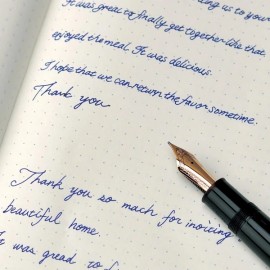 ng us to your
It was great to finally get together like that.
enjoyed the meal. It was delicious.
I hope that we can return the favor sometime.
Thank you
Thank you so much for inviting
beautiful home.
It was great to f